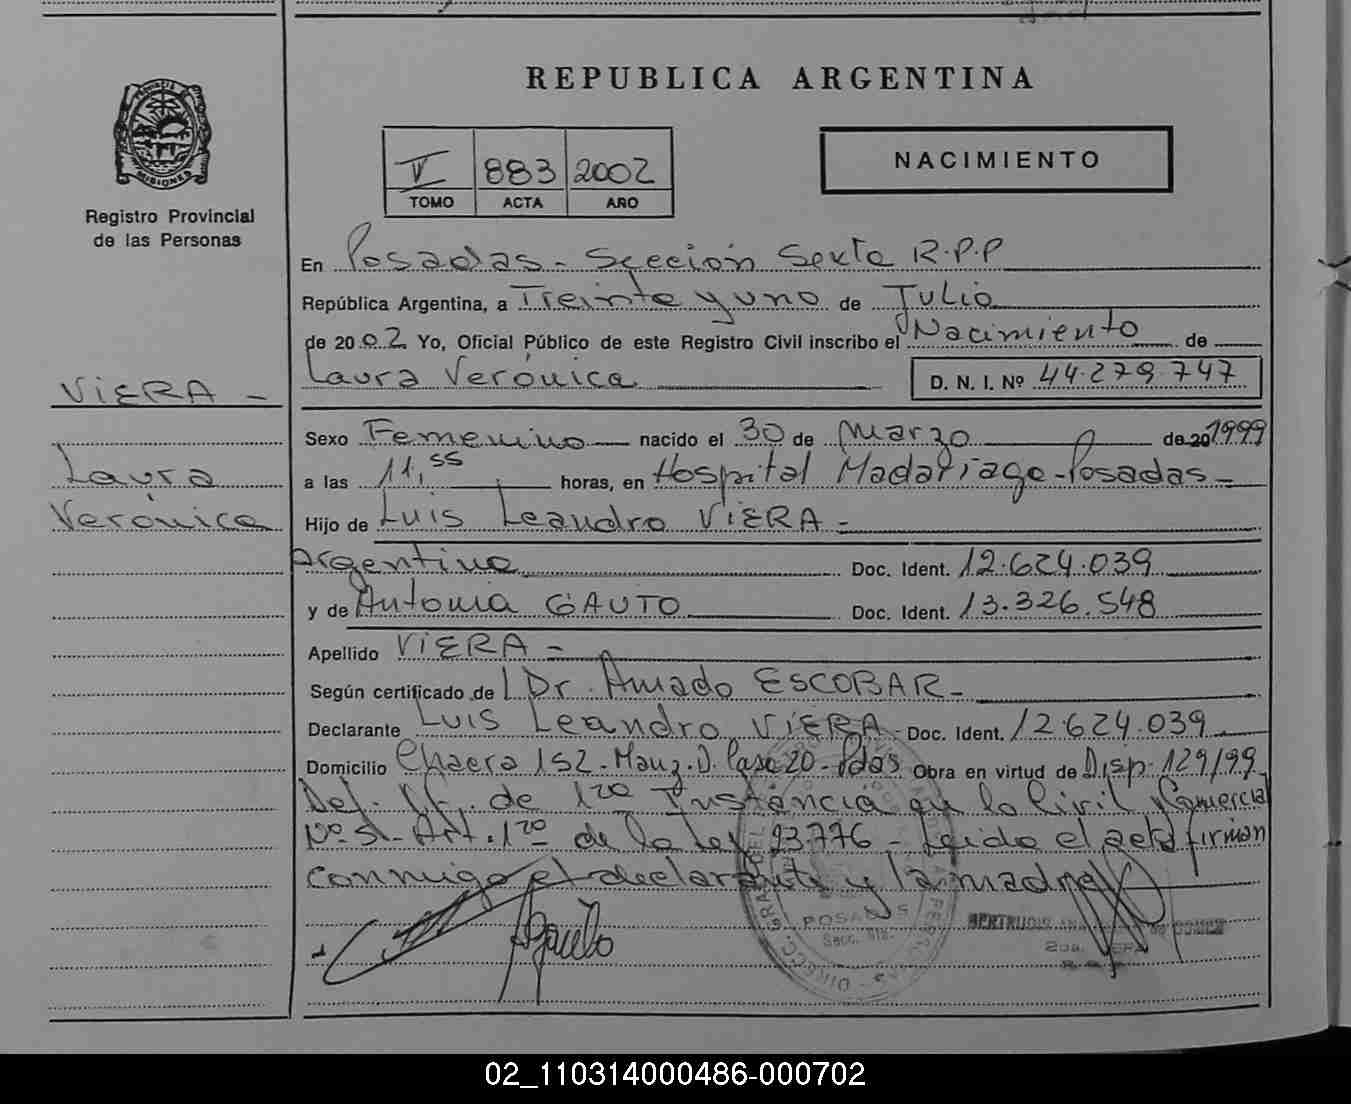 REPUBLICA ARGENTINA
PROVINCIA DE
MISIONES
Registro Provincial
de las Personas
V 883 2002
TOMO ACTA AÑO
NACIMIENTO
En Posadas - Sección Sexta R.P.P
República Argentina, a Treinta y uno de Julio
de 2002 Yo, Oficial Público de este Registro Civil inscribo el Nacimiento de
Laura Verónica D. N. I. Nº 44.279.747
VIERA -
Laura
Verónica
Sexo Femenino nacido el 30 de Marzo de 20 1999
a las 11,55 horas, en Hospital Madariaga - Posadas -
Hijo de Luis Leandro VIERA -
Argentino Doc. Ident. 12.624.039
y de Antonia GAUTO Doc. Ident. 13.326.548
Apellido VIERA -
Según certificado de Dr. Amado ESCOBAR -
Declarante Luis Leandro VIERA - Doc. Ident. 12.624.039
Domicilio Chacra 152 - Manz. D. Pasc 20 - Pdas Obra en virtud de Disp. 129/99
Def. Of. de 1ra Instancia en lo Civil y Comercial
Art. 1ro de la Ley 23.776 - Leido el acta firman
conmigo el declarante y la madre
POSADAS
Secc. 6ta.
02_110314000486-000702